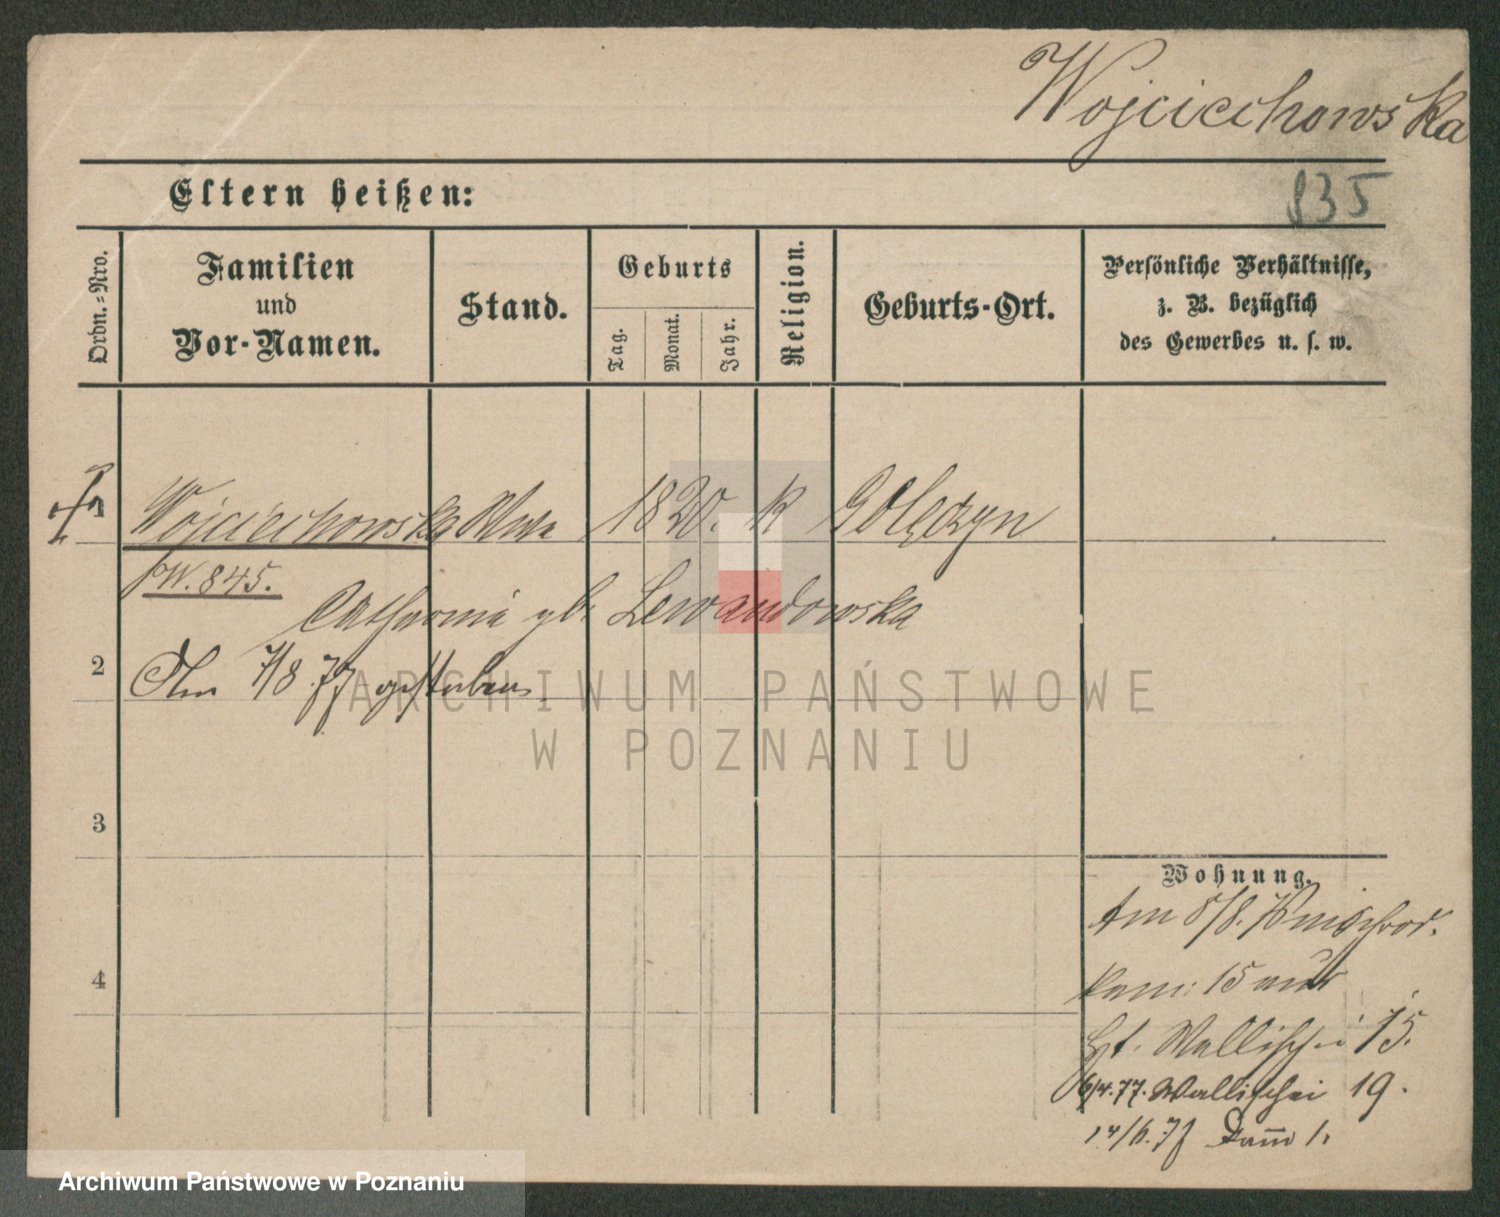 Wojciechowska
835
Eltern heißen:
Ordn.=Nro.
Familien
und
Vor-Namen.
Stand.
Geburts
Tag.
Monat.
Jahr.
Religion.
Geburts-Ort.
Persönliche Verhältnisse,
z. B. bezüglich
des Gewerbes u. s. w.
1 Wojciechowska Wwe 1820. k Golęczyn
W. 845.
Catharina gb. Lewandowska
2
Am 7/8 77 gestorben.
3
Wohnung.
Am 8/8.
15 aus
4
Wallischei 15.
6/4.77. Wallischei 19.
14/6.77 Damm 1.
ARCHIWUM PAŃSTWOWE
W POZNANIU
Archiwum Państwowe w Poznaniu